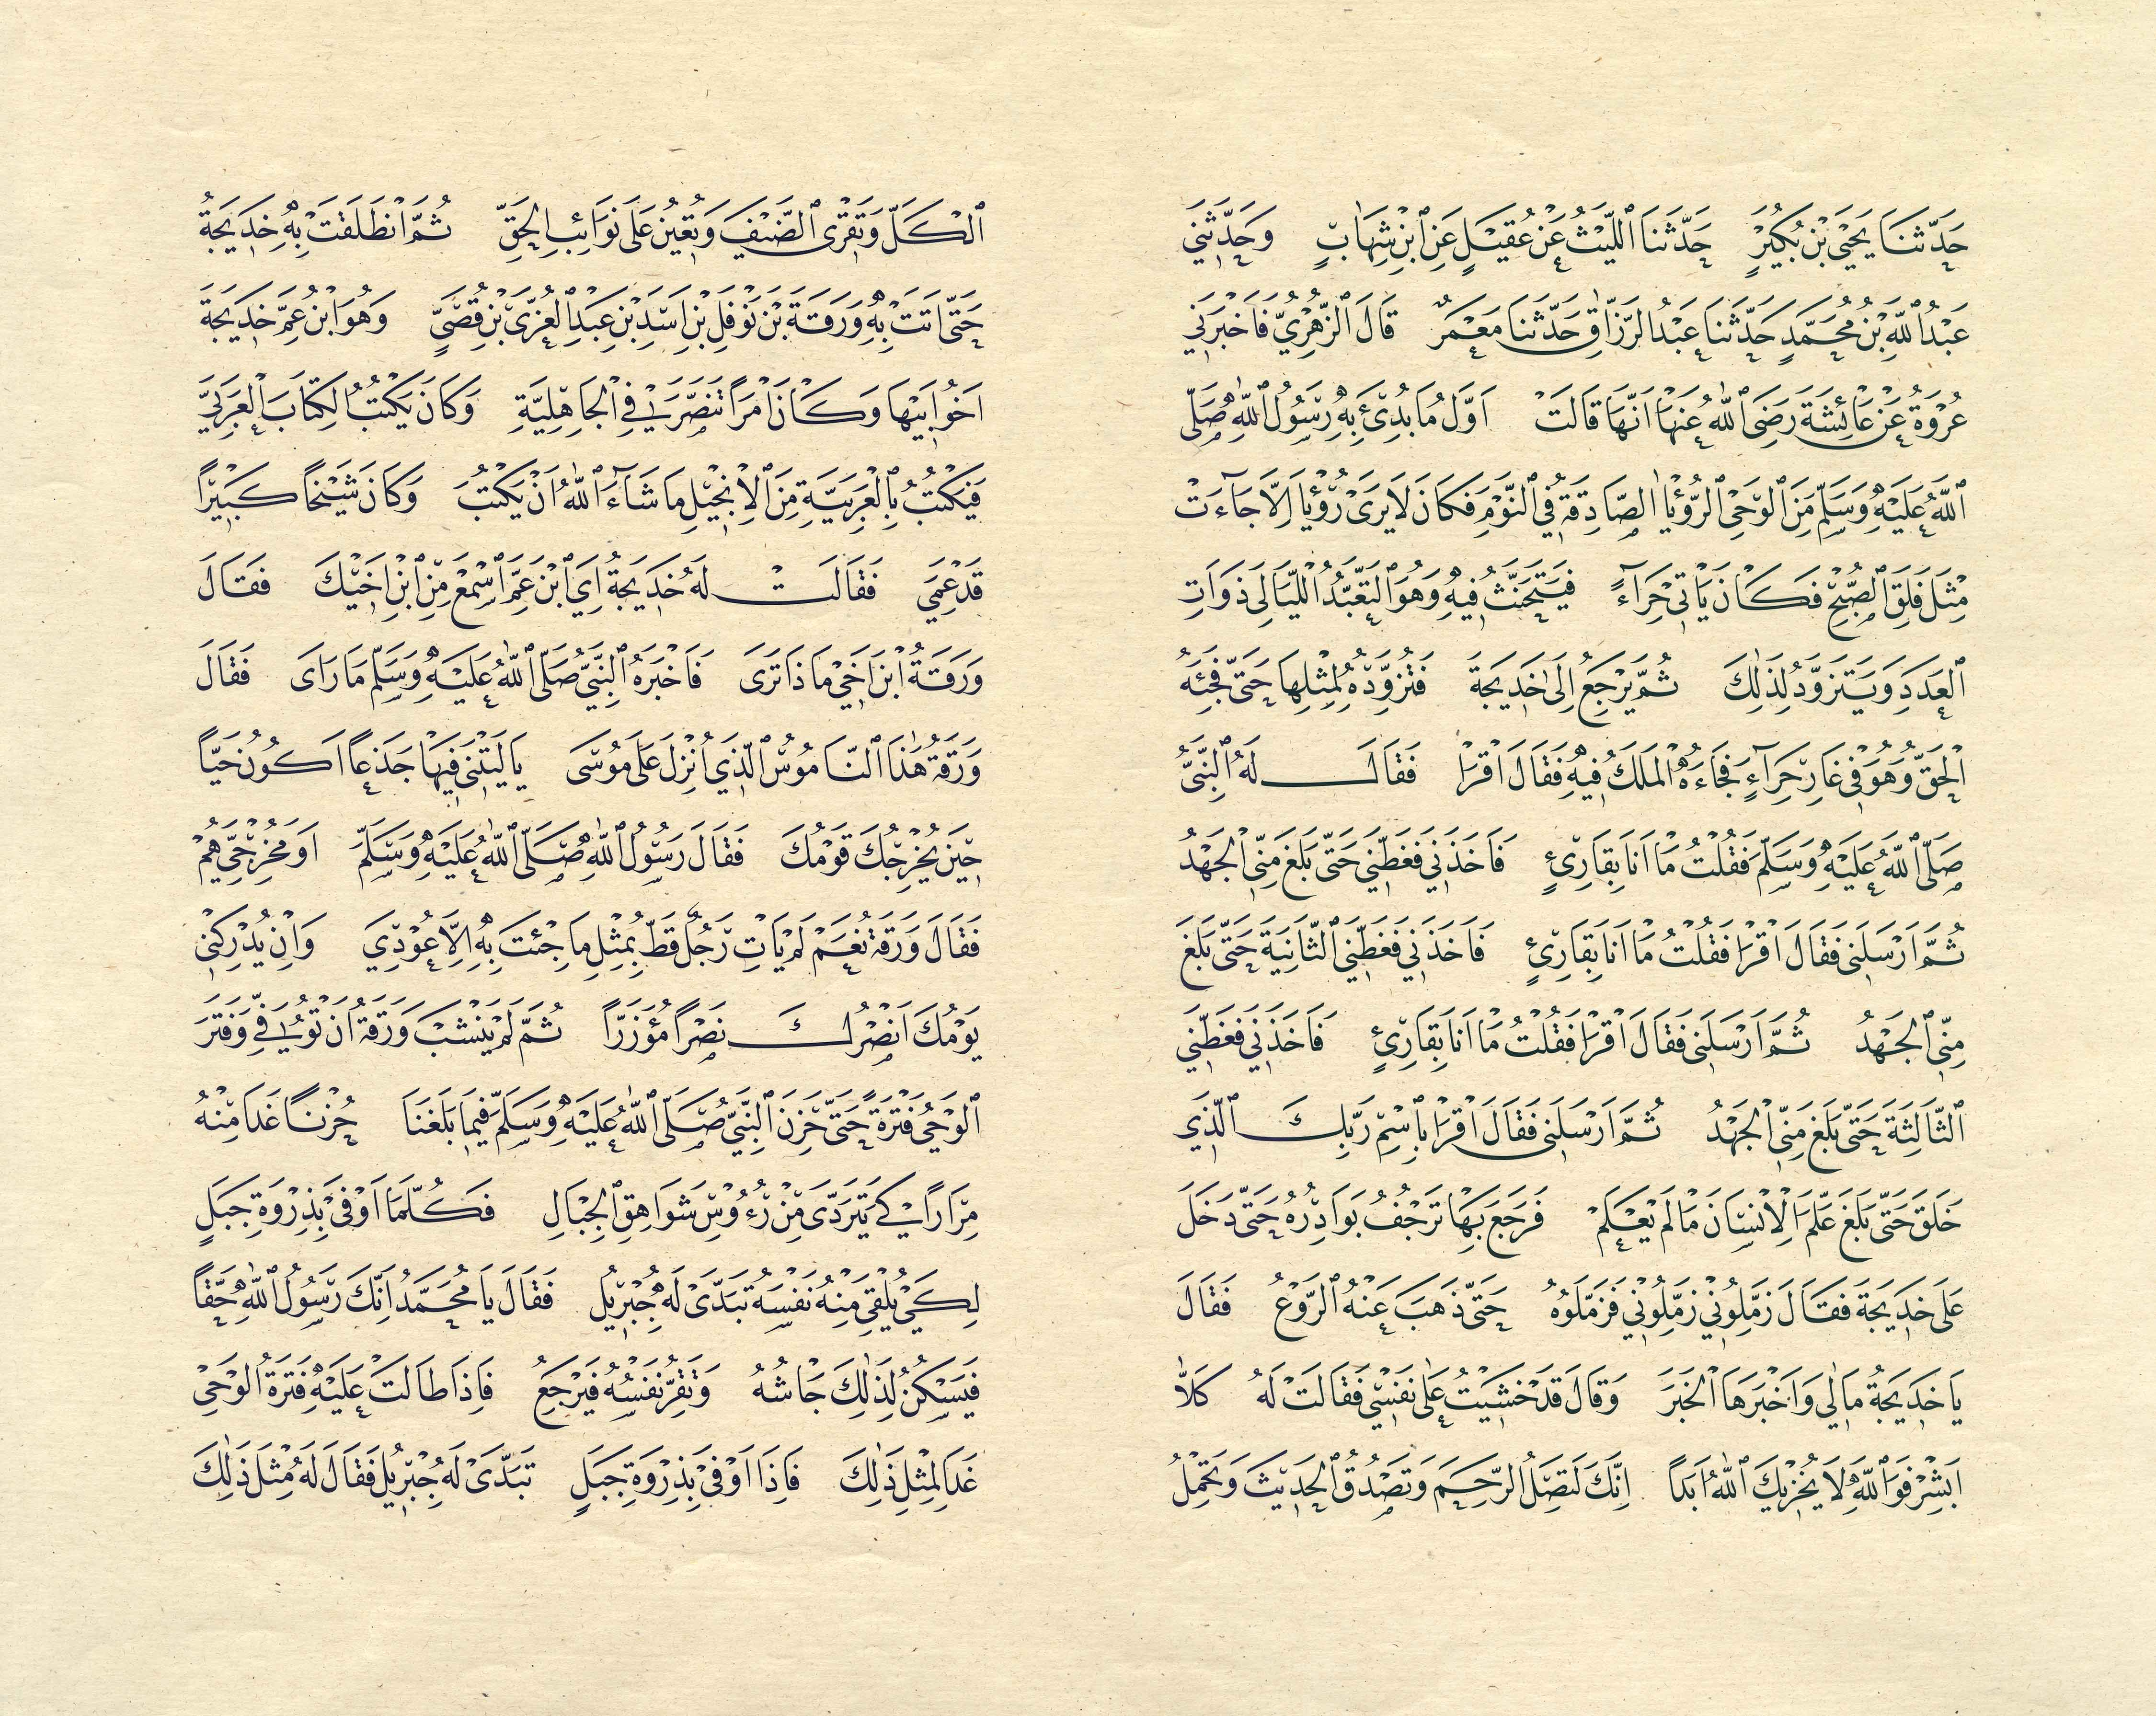 حَدَّثَنَا يَحْيَى بْنُ بُكَيْرٍ حَدَّثَنَا اللَّيْثُ عَنْ عُقَيْلٍ عَنِ ابْنِ شِهَابٍ وَحَدَّثَنِي
عَبْدُ اللَّهِ بْنُ مُحَمَّدٍ حَدَّثَنَا عَبْدُ الرَّزَّاقِ حَدَّثَنَا مَعْمَرٌ قَالَ الزُّهْرِيُّ فَاَخْبَرَنِي
عُرْوَةُ عَنْ عَائِشَةَ رَضِيَ اللَّهُ عَنْهَا اَنَّهَا قَالَتْ اَوَّلُ مَا بُدِئَ بِهِ رَسُولُ اللَّهِ صَلَّى
اللَّهُ عَلَيْهِ وَسَلَّمَ مِنَ الْوَحْيِ الرُّؤْيَا الصَّادِقَةُ فِي النَّوْمِ فَكَانَ لَا يَرَى رُؤْيَا اِلَّا جَآءَتْ
مِثْلَ فَلَقِ الصُّبْحِ فَكَانَ يَاْتِي حِرَآءً فَيَتَحَنَّثُ فِيهِ وَهُوَ التَّعَبُّدُ اللَّيَالِيَ ذَوَاتِ
الْعَدَدِ وَيَتَزَوَّدُ لِذٰلِكَ ثُمَّ يَرْجِعُ اِلَى خَدِيجَةَ فَتُزَوِّدُهُ لِمِثْلِهَا حَتَّى فَجِئَهُ
الْحَقُّ وَهُوَ فِي غَارِ حِرَآءٍ فَجَاءَهُ الْمَلَكُ فِيهِ فَقَالَ اقْرَاْ فَقَالَ لَهُ النَّبِيُّ
صَلَّى اللَّهُ عَلَيْهِ وَسَلَّمَ فَقُلْتُ مَا اَنَا بِقَارِئٍ فَاَخَذَنِي فَغَطَّنِي حَتَّى بَلَغَ مِنِّي الْجَهْدُ
ثُمَّ اَرْسَلَنِي فَقَالَ اقْرَاْ فَقُلْتُ مَا اَنَا بِقَارِئٍ فَاَخَذَنِي فَغَطَّنِي الثَّانِيَةَ حَتَّى بَلَغَ
مِنِّي الْجَهْدُ ثُمَّ اَرْسَلَنِي فَقَالَ اقْرَاْ فَقُلْتُ مَا اَنَا بِقَارِئٍ فَاَخَذَنِي فَغَطَّنِي
الثَّالِثَةَ حَتَّى بَلَغَ مِنِّي الْجَهْدُ ثُمَّ اَرْسَلَنِي فَقَالَ اقْرَاْ بِاسْمِ رَبِّكَ الَّذِي
خَلَقَ حَتَّى بَلَغَ عَلَّمَ الْاِنْسَانَ مَا لَمْ يَعْلَمْ فَرَجَعَ بِهَا تَرْجُفُ بَوَادِرُهُ حَتَّى دَخَلَ
عَلَى خَدِيجَةَ فَقَالَ زَمِّلُونِي زَمِّلُونِي فَزَمَّلُوهُ حَتَّى ذَهَبَ عَنْهُ الرَّوْعُ فَقَالَ
يَا خَدِيجَةُ مَا لِي وَاَخْبَرَهَا الْخَبَرَ وَقَالَ قَدْ خَشِيتُ عَلَى نَفْسِي فَقَالَتْ لَهُ كَلَّا
اَبْشِرْ فَوَاللَّهِ لَا يُخْزِيكَ اللَّهُ اَبَدًا اِنَّكَ لَتَصِلُ الرَّحِمَ وَتَصْدُقُ الْحَدِيثَ وَتَحْمِلُ
الْكَلَّ وَتَقْرِي الضَّيْفَ وَتُعِينُ عَلَى نَوَائِبِ الْحَقِّ ثُمَّ انْطَلَقَتْ بِهِ خَدِيجَةُ
حَتَّى اَتَتْ بِهِ وَرَقَةَ بْنَ نَوْفَلِ بْنِ اَسَدِ بْنِ عَبْدِ الْعُزَّى بْنِ قُصَيٍّ وَهُوَ ابْنُ عَمِّ خَدِيجَةَ
اَخُو اَبِيهَا وَكَانَ امْرَاً تَنَصَّرَ فِي الْجَاهِلِيَّةِ وَكَانَ يَكْتُبُ الْكِتَابَ الْعَرَبِيَّ
فَيَكْتُبُ بِالْعَرَبِيَّةِ مِنَ الْاِنْجِيلِ مَا شَآءَ اللَّهُ اَنْ يَكْتُبَ وَكَانَ شَيْخًا كَبِيرًا
قَدْ عَمِيَ فَقَالَتْ لَهُ خَدِيجَةُ اَيِ ابْنَ عَمِّ اسْمَعْ مِنِ ابْنِ اَخِيكَ فَقَالَ
وَرَقَةُ ابْنَ اَخِي مَاذَا تَرَى فَاَخْبَرَهُ النَّبِيُّ صَلَّى اللَّهُ عَلَيْهِ وَسَلَّمَ مَا رَاَى فَقَالَ
وَرَقَةُ هٰذَا النَّامُوسُ الَّذِي اُنْزِلَ عَلَى مُوسَى يَا لَيْتَنِي فِيهَا جَذَعًا اَكُونُ حَيًّا
حِينَ يُخْرِجُكَ قَوْمُكَ فَقَالَ رَسُولُ اللَّهِ صَلَّى اللَّهُ عَلَيْهِ وَسَلَّمَ اَوَمُخْرِجِيَّ هُمْ
فَقَالَ وَرَقَةُ نَعَمْ لَمْ يَاْتِ رَجُلٌ قَطُّ بِمِثْلِ مَا جِئْتَ بِهِ اِلَّا عُودِيَ وَاِنْ يُدْرِكْنِي
يَوْمُكَ اَنْصُرْكَ نَصْرًا مُؤَزَّرًا ثُمَّ لَمْ يَنْشَبْ وَرَقَةُ اَنْ تُوُفِّيَ وَفَتَرَ
الْوَحْيُ فَتْرَةً حَتَّى حَزِنَ النَّبِيُّ صَلَّى اللَّهُ عَلَيْهِ وَسَلَّمَ فِيمَا بَلَغَنَا حُزْنًا غَدَا مِنْهُ
مِرَارًا كَيْ يَتَرَدَّى مِنْ رُءُوسِ شَوَاهِقِ الْجِبَالِ فَكُلَّمَا اَوْفَى بِذِرْوَةِ جَبَلٍ
لِكَيْ يُلْقِيَ مِنْهُ نَفْسَهُ تَبَدَّى لَهُ جِبْرِيلُ فَقَالَ يَا مُحَمَّدُ اِنَّكَ رَسُولُ اللَّهِ حَقًّا
فَيَسْكُنُ لِذٰلِكَ جَاْشُهُ وَتَقِرُّ نَفْسُهُ فَيَرْجِعُ فَاِذَا طَالَتْ عَلَيْهِ فَتْرَةُ الْوَحْيِ
غَدَا لِمِثْلِ ذٰلِكَ فَاِذَا اَوْفَى بِذِرْوَةِ جَبَلٍ تَبَدَّى لَهُ جِبْرِيلُ فَقَالَ لَهُ مِثْلَ ذٰلِكَ